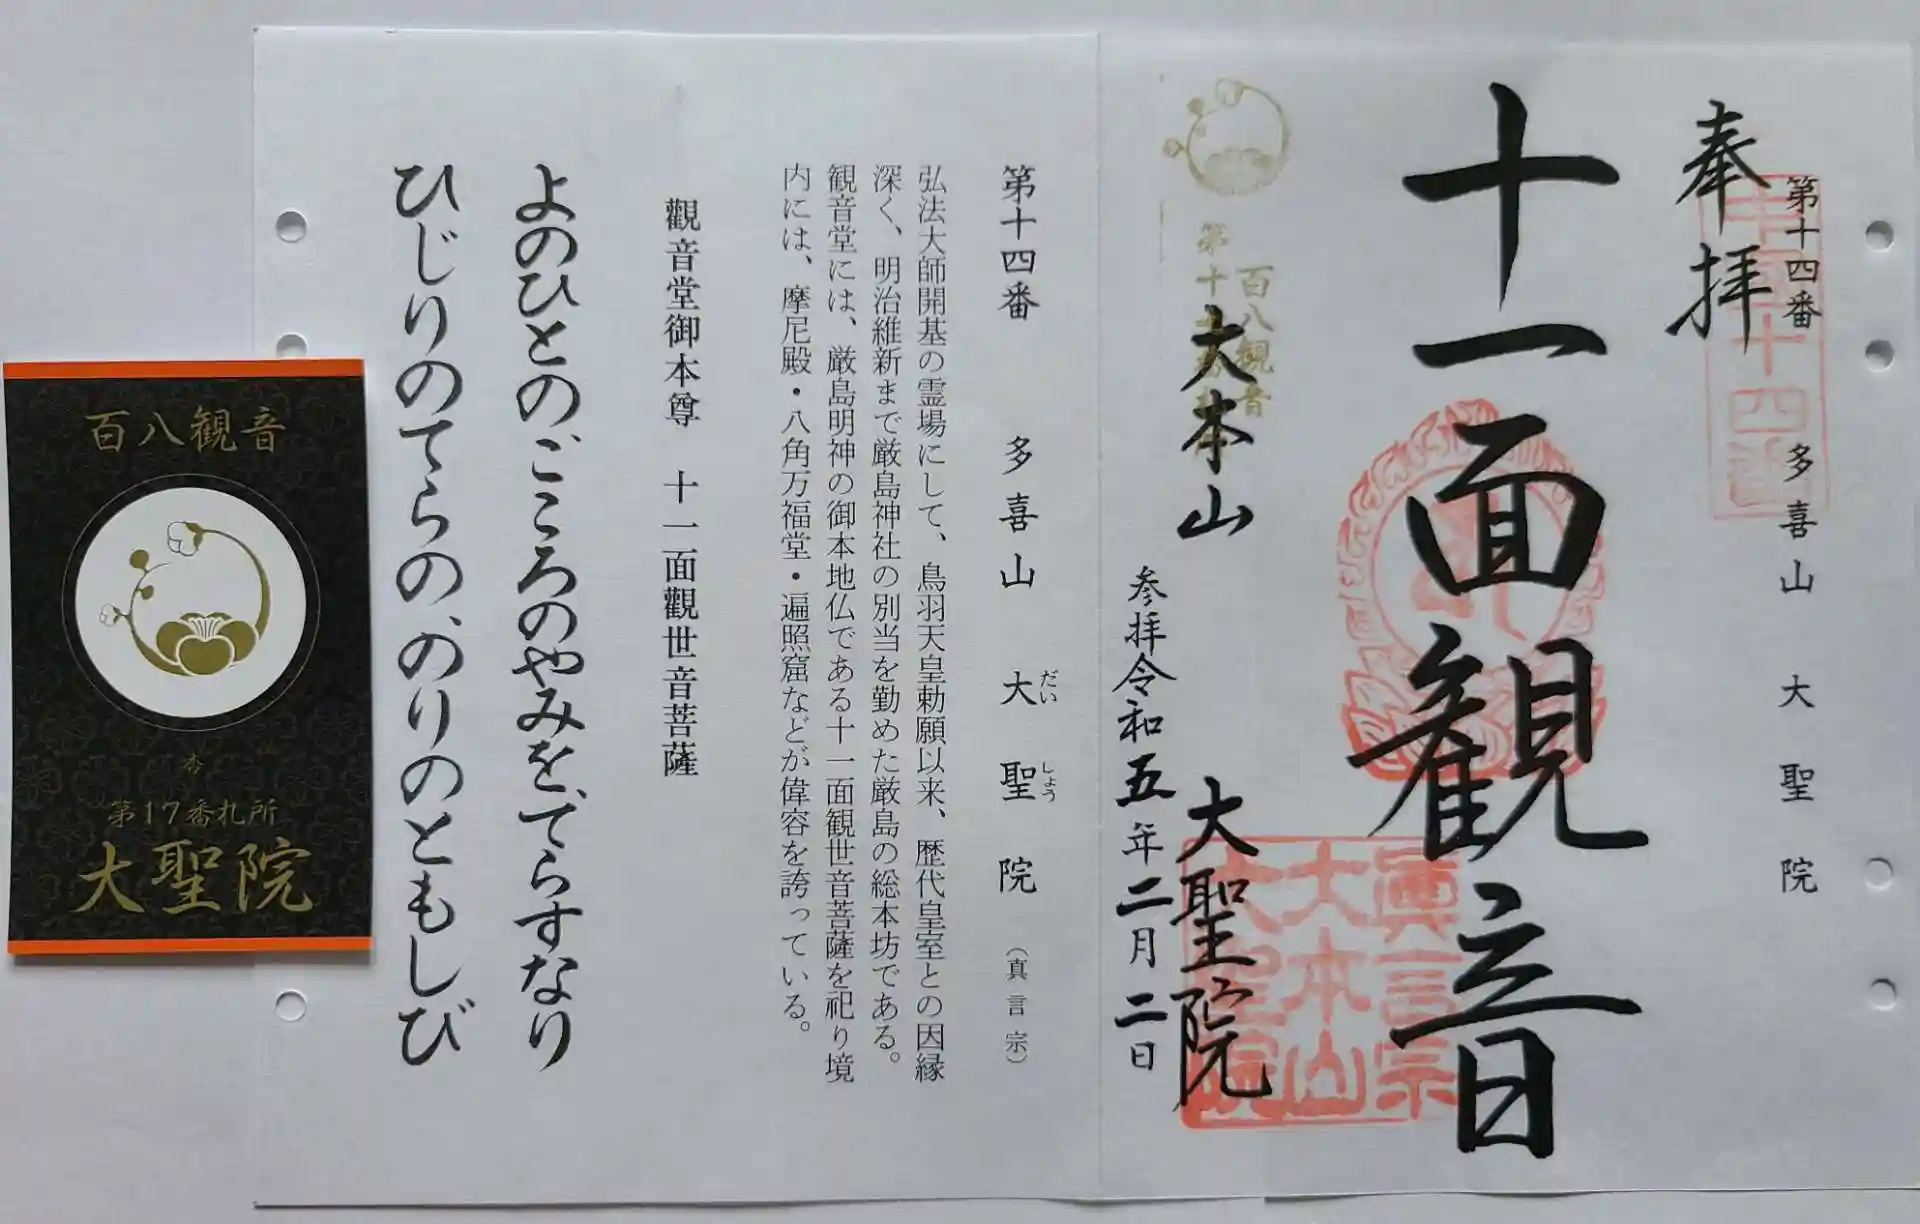 第十四番 多喜山 大聖院
奉拝
十四番
十一面観音
百八観音
第十
大本山 大聖院
眞言宗
大本山
大聖院
参拝令和五年二月二日
第十四番 多喜山 大聖院（真言宗）
だい しょう
弘法大師開基の霊場にして、鳥羽天皇勅願以来、歴代皇室との因縁
深く、明治維新まで厳島神社の別当を勤めた厳島の総本坊である。
観音堂には、厳島明神の御本地仏である十一面観世音菩薩を祀り境
内には、摩尼殿・八角万福堂・遍照窟などが偉容を誇っている。
觀音堂御本尊 十一面觀世音菩薩
よのひとの、こころのやみを、てらすなり
ひじりのてらの、のりのともしび
百八観音
杏
第17番札所
大聖院